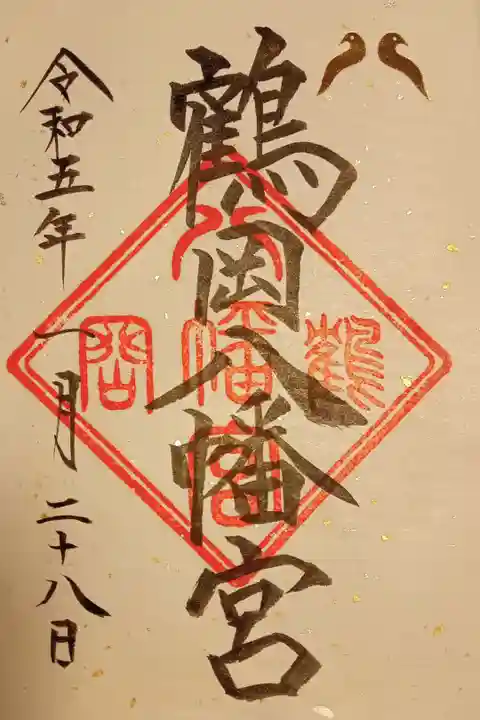 鶴岡八幡宮
鶴
岡
八
幡
宮
令和五年一月二十八日